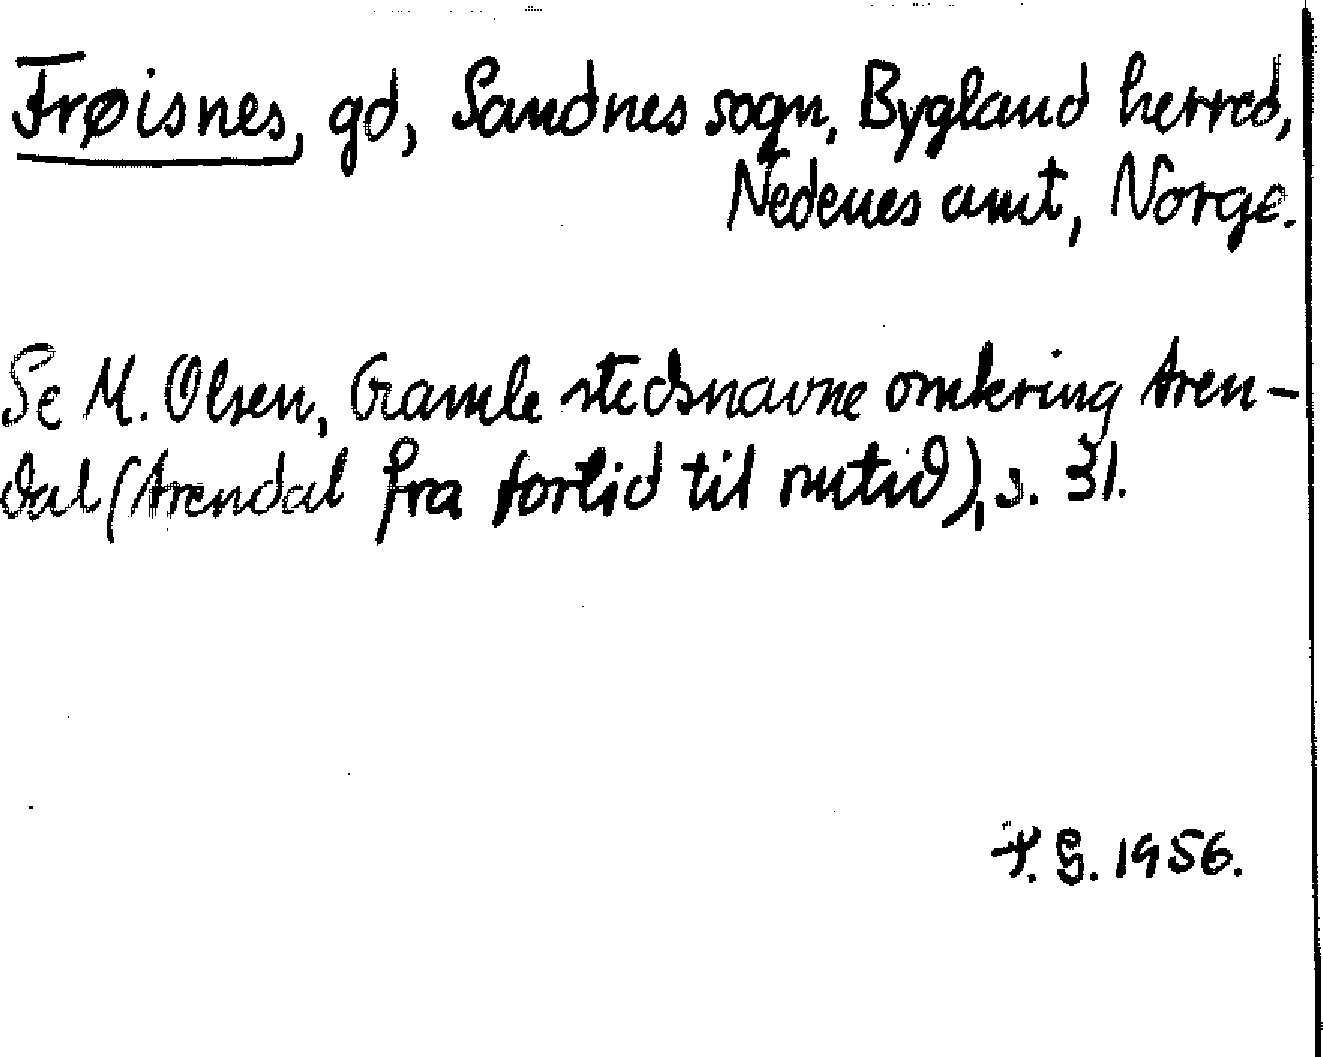 Frøisnes, gd, Sandnes sogn, Bygland herred,
Nedenes amt, Norge.
Se M. Olsen, Gamle stedsnavne omkring Aren-
dal (Arendal fra fortid til nutid), s. 31.
1956.